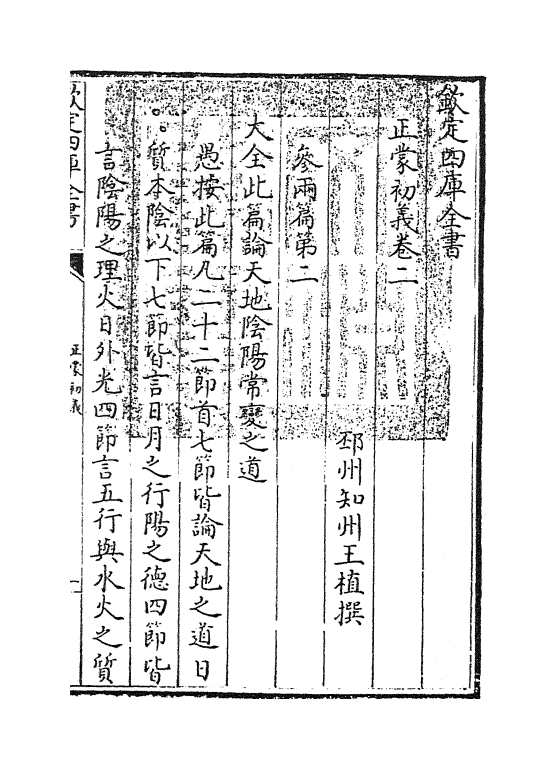 欽定四庫全書
正蒙初義卷二
邳州知州王植撰
參兩篇第二
大全此篇論天地陰陽常變之道
愚按此篇凡二十二節首七節皆論天地之道日
質本陰以下七節皆言日月之行陽之德四節皆
言陰陽之理火日外光四節言五行與水火之質
欽定四庫全書
正蒙初義
一